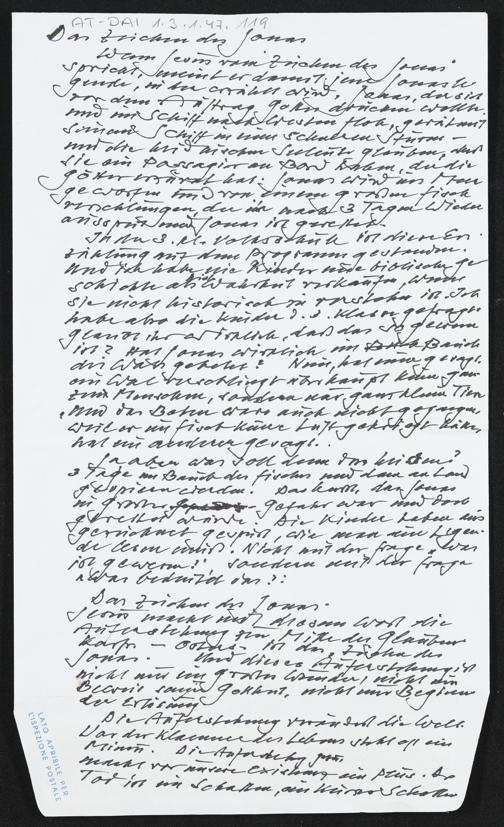 AT-DAI 1.3.1.47. 119
Das Zeichen des Jonas
Wenn Jesus vom Zeichen des Jonas
spricht, meint er damit jene Jonasle
gende, in der erzählt wird, Jonas, der sich
vor dem Auftrag Gottes drücken wollte
und mit Schiff nach Westen floh, gerät mit
seinem Schiff in einen schweren Sturm -
und die heidnischen Seeleute glauben, daß
sie ein Passagier an Bord haben, der die
Götter erzürnt hat: Jonas wird ins Meer
geworfen und von einem großen Fisch
verschlungen der ihn nach 3 Tagen wieder
ausspuckt und Jonas ist gerettet.
In der 3. Kl. Volksschule ist diese Er
zählung auf dem Programm gestanden.
Und ich habe nie Kinder eine biblische Ge
schichte als Wahrheit verkaufen, wenn
sie nicht historisch zu verstehen ist. Ich
habe also die Kinder d. 3. Klasse gefragt:
glaubt ihr wirklich, daß das so gewesen
ist? Hat Jonas wirklich im Bauch
des Wals gebetet? Nein, hat einer gesagt,
ein Wal verschlingt überhaupt keine gan
zen Menschen, sondern nur ganz kleine Tiere
Und das Beten wäre auch nicht gegangen,
weil er im Fisch keine Luft gekriegt hätte,
hat ein anderer gesagt..
Ja aber was soll denn das heißen?
3 Tage im Bauch des Fisches und dann an Land
gespieen werden. Das heißt, daß Jonas
in großer Gefahr war und doch
gerettet wurde. Die Kinder haben aus
gezeichnet gespürt, wie man eine Legen
de lesen muß. Nicht mit der Frage "was
ist gewesen?" sondern mit der Frage
"was bedeutet das?":
Das Zeichen des Jonas.
Jesus macht mit diesem Wort die
Auferstehung zur Mitte des Glaubens
- Ostern - ist das Zeichen des
Jonas. Und dieses Auferstehung ist
nicht nur ein großes Wunder, nicht ein
Beweis seiner Gottheit, nicht nur Beginn
der Erlösung
Die Auferstehung verändert die Welt.
Vor der Klammer des Lebens steht oft ein
Minus. Die Auferstehung
macht vor unsere Existenz ein Plus. Der
Tod ist ein Schatten, ein kurzer Schatten
LATO APRIBILE PER
L'ISPEZIONE POSTALE